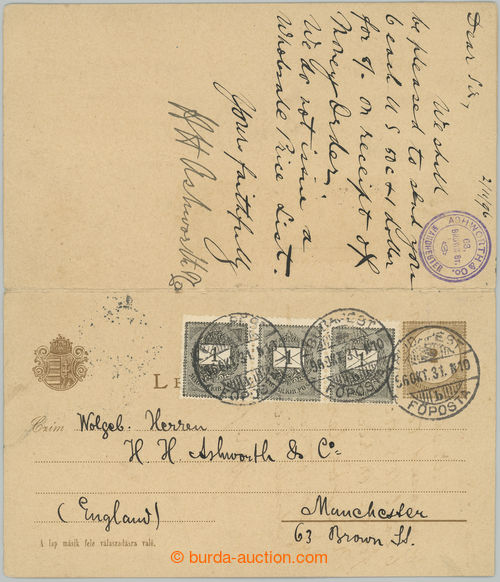 2/11/96
Dear Sir,
We shall
be pleased to send you
6 each U S 50c & 1 dollar
for on receipt of
Money Order.
We do not issue a
Wholesale Price List.
Yours faithfully
H H Ashworth & Co
ASHWORTH & Co.
63,
BROWN ST.
MANCHESTER
BUDAPEST
96 OKT. 31. N 10
FŐPOSTA
1
1
1
Czim Wolgeb. Herren
H H Ashworth & Co
(England) Manchester
63 Brown St.
A lap másik fele válaszadásra való.
© burda-auction.com